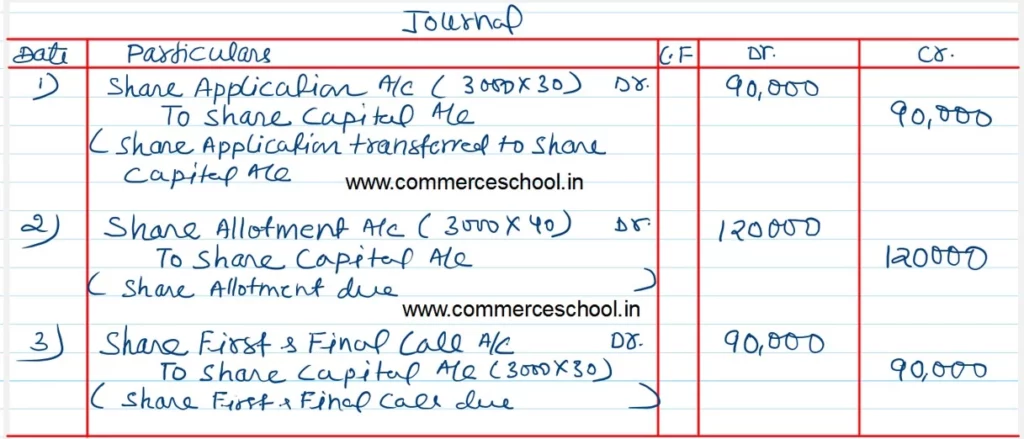 Journal
Date Particulars L.F Dr. Cr.
1) Share Application A/c ( 3000X30) Dr. 90,000
To Share Capital A/c 90,000
( Share Application transferred to Share
Capital A/c www.commerceschool.in
2) Share Allotment A/c ( 3000 X 40) Dr. 120000
To Share Capital A/c 120000
( Share Allotment due )
www.commerceschool.in
3) Share First & Final Call A/c Dr. 90,000
To Share Capital A/c (3000X30) 90,000
( Share First & Final Call due )